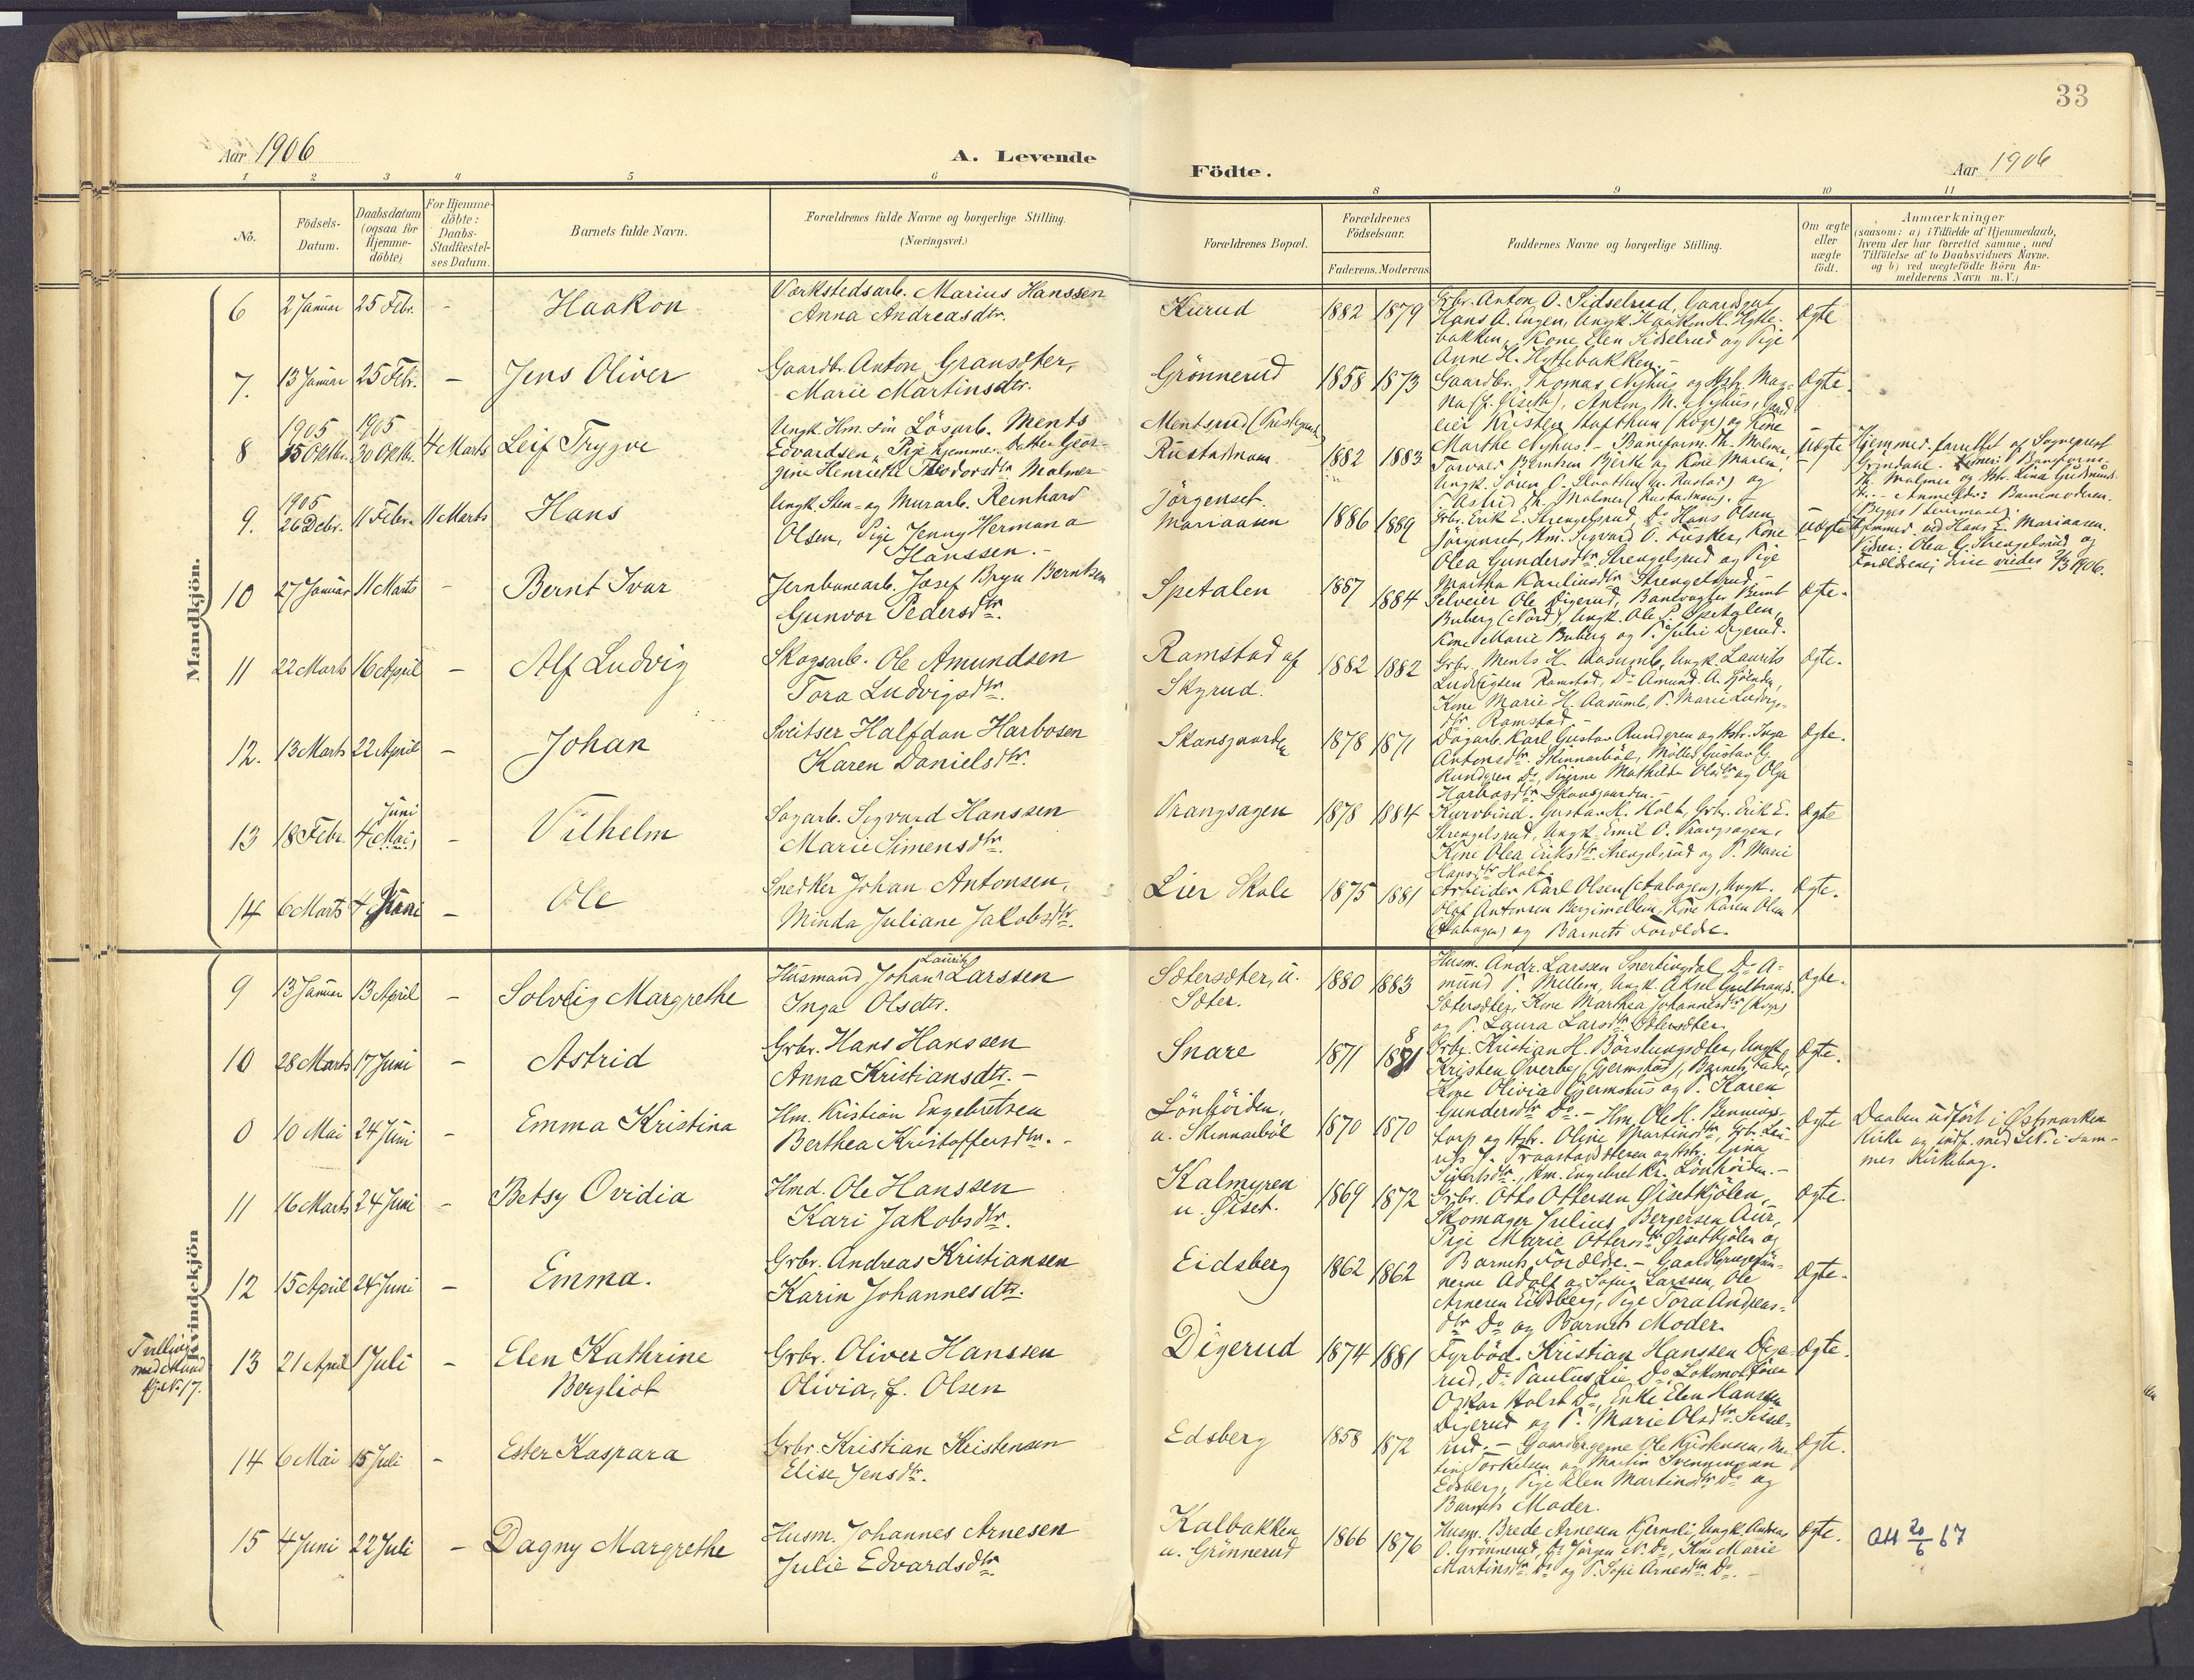 33
Aar 1906
A. Levende
Födte.
Aar 1906
1 2 3 4 5 6 8 9 10 11
No.
Födsels-Datum.
Daabsdatum (ogsaa for Hjemme-döbte)
For Hjemme-döbte: Daabs-Stadfæstel-ses Datum.
Barnets fulde Navn.
Forældrenes fulde Navne og borgerlige Stilling. (Næringsvei.)
Forældrenes Bopæl.
Forældrenes Födselsaar.
Faderens. Moderens
Faddernes Navne og borgerlige Stilling.
Om ægte eller uægte födt.
Anmærkninger
(saasom: a) i Tilfælde af Hjemmedaab,
hvem der har forrettet samme, med
Tilföielse af to Daabsvidners Navne.
og b) ved uægtefödte Börn An-
melderens Navn m. V.)
Mandkjön.
6 2 Januar 25 Febr. - Haakon
Værkstedsarb. Marius Hanssen
Anna Andreasdtr.
Kurud 1882 1879
Grbr. Anton O. Sidselrud, Gaardgut
Hans A. Engen, Ungk. Haakon H. Hytte-
bakken, Kone Elen Sidselrud og Pige
Anne H. Hyttebakken.-
Ægte
7. 13 Januar 25 Febr. - Jens Oliver
Gaardbr. Anton Gransæter,
Marie Martinsdtr.
Grönnerud 1858 1873
Gaardbr. Thomas Nyhus og Hstr. Mag-
na (f. Giseth), Anton M. Nyhus, Gaard-
eier Kristen Haftthun (Kops) og Kone
Marthe Nyhus.-
Ægte.
8 1905 15 Oktbr. 1905 30 Oktbr. 4 Marts Leif Trygve
Ungk. Hm. sön Lösarb. Ments
Edvardsen, Pige hjemmev. Datter Geor-
gine Henriette Theodorsdtr. Malmer
Mentsrud (Prestegaard)
Rustadmoen 1882 1883
Baneform. Th. Malmer,
Torvald Berntsen Bjerke og Kone Maren,
Ungk. Sören O. Skratten (u. Rustad) og
P. Astrid Th. Malmer (Rustadmoen).-
Uægte
Hjemmed. forrettet af Sogneprest
Grindahl. Vidner: Baneform.
Th. Malmer og Hstr. Lina Gudmunds-
dtr.- Anmelder: Barnemoderen.
Begges 1 Leiermaal.
9. 1905 26 Debr. 11 Febr. 11 Marts Hans
Ungk. Sten- og Murarb. Reinhard
Olsen, Pige Jenny Hermana
Hanssen.-
Jörgenset
Mariaasen 1886 1889
Grbr. Erik E. Strengelsrud, Do Hans Olsen
Jörgenset, Hm. Sigvard O. Fusker, Kone
Olea Gundersdtr. Strengelsrud og Pige
Martha Karelinsdtr. Strengelsrud.-
Uægte
Hjemmed. ved Hans E. Mariaasen.
Vidner: Olea G. Strengelsrud og
10 27 Januar 11 Marts - Bernt Ivar
Jernbanearb. Josef Bryn Berntsen
Gunvor Pedersdtr.
Spetalen 1887 1884
Selveier Ole Digerud, Banevogter Bernt
Buberg (Nord), Ungk. Ole P. Spetalen,
Kone Marie Buberg og P. Julie Digerud.
Ægte.
11 22 Marts 16 April - Alf Ludvig
Skogsarb. Ole Amundsen
Tora Ludvigsdtr.
Ramstad af
Skyrud. 1882 1882
Grbr. Ments H. Aasumb, Ungk. Laurits
Ludvigsen Ramstad, Do Amund A. Sjölndr,
Kone Marie H. Aasumb, P. Marie Ludvigs-
dtr. Ramstad.-
Ægte.
12. 13 Marts 22 April - Johan
Sveitser Halfdan Harbosen
Karen Danielsdtr.
Skansgaarden 1878 1871
Dagarb. Karl Gustav Rundgren og Hstr. Inga
Antonsdtr. Skinnarböl, Möller Gustav G.
Rundgren Do, Pigerne Mathilde Olsdtr. og Olga
Harbosdtr. Skansgaarden.-
Ægte.
13 18 Febr. 4 Juni Mai, - Vilhelm
Sagarb. Sigvard Hanssen
Marie Simensdtr.
Vrangsagen 1878 1884
Kurvbind. Gustav M. Holt, Grbr. Erik E.
Strengelsrud, Ungk. Emil O. Vrangsagen,
Kone Olea Eriksdtr. Strengelsrud og P. Marie
Hansdtr. Holt.
Ægte
14 6 Marts 4 Juni - Ole
Snedker Johan Antonsen,
Minda Juliane Jakobsdtr.
Lier Skole 1875 1881
Arbeider Karl Olsen (Aabogen), Ungk.
Olaf Antonsen Bergimellem, Kone Karen Olsen
(Aabogen) og Barnets Forældre.
Ægte.
Kvindekjön
9 13 Januar 13 April - Solveig Margrethe
Husmand Johan Lauritz Larssen
Inga Olsdtr.
Sætersæter, u.
Sæter. 1880 1883
Husm. Andr. Larssen Snertingdal, Do A-
mund P. Mellem, Ungk. Aksel Gulbrands.
Sætersæter, Kone Marthea Johannesdtr. (Kops)
og P. Laura Larsdtr. Sætersæter.
Ægte.
10 28 Marts 17 Juni - Astrid
Grbr. Hans Hanssen
Anna Kristiansdtr.-
Snare 1871 1881
Grbr. Kristian H. Börslungsæter, Ungk.
Kristen Overby (Gjermshus), Barnets Fader,
Kone Olivia Gjermshus og P. Karen
Gundersdtr. Do.-
Ægte.
0 10 Mai 24 Juni - Emma Kristina
Hm. Kristian Engebretsen
Berthea Kristoffersdtr.-
Lönhöiden,
u. Skinnarböl 1870 1870
Hm. Ole K. Bennings-
torp og Hstr. Oline Martinsdtr., Grbr. Lau-
rits J. Traastadsteren og Hstr. Gina
Sivertsdtr., Hm. Engebret Kr. Lönhöiden.-
Ægte
Daaben udfört i Østmarken
Kirke og indf. med L.N. i sam-
mes Kirkebog.
11 16 Marts 24 Juni - Betsy Ovidia
Hmd. Ole Hanssen
Kari Jakobsdtr.
Kalmyren
u. Øiset. 1869 1872
Grbr. Otto Ottersen Øisetkjölen,
Skomager Julius Bergersen Aur,
Pige Marie Ottersdtr. Øisetkjölen og
Barnets Forældre.-
Ægte.
12 15 April 24 Juni - Emma.
Grbr. Andreas Kristiansen
Karin Johannesdtr.
Eidsberg 1862 1862
nerne Adolf og Sofus Larssen, Ole
Arnesen Eidsberg, Pige Tora Andreas-
dtr. Do og Barnets Moder.
Ægte.
Tvilling
med Mand
kj. N. 17.
13 21 April 1 Juli - Elen Kathrine
Bergliot
Grbr. Oliver Hanssen
Olivia, f. Olsen
Digerud 1874 1881
Fyrböd. Kristian Hanssen Dige-
rud, Do Paulus Lie Do, Lokomotförer
Oskar Holst Do, Enke Elen Hanssen
Digerud og P. Marie Olsdtr. Sissel-
rud.-
Ægte.
14 6 Mai 15 Juli - Ester Kaspara
Grbr. Kristian Kristensen
Elise Jensdtr.
Edsberg 1858 1872
Gaardbrgerne Ole Kristensen, Mar-
tin Torkelsen og Martin Svenningsen
Edsberg, Pige Elen Martinsdtr. Do og
Barnets Moder.
Ægte.
15 4 Juni 22 Juli - Dagny Margrethe
Husm. Johannes Arnesen
Julie Edvardsdtr.
Kalbakken
u. Grönnerud 1866 1876
Husm. Brede Arnesen Kjernsli, Ungk. Andreas
O. Grönnerud, Do Jörgen N. Do, Kone Marie
Martinsdtr. Do og P. Sofie Arnesdtr. Do.-
Ægte.
20/6 67